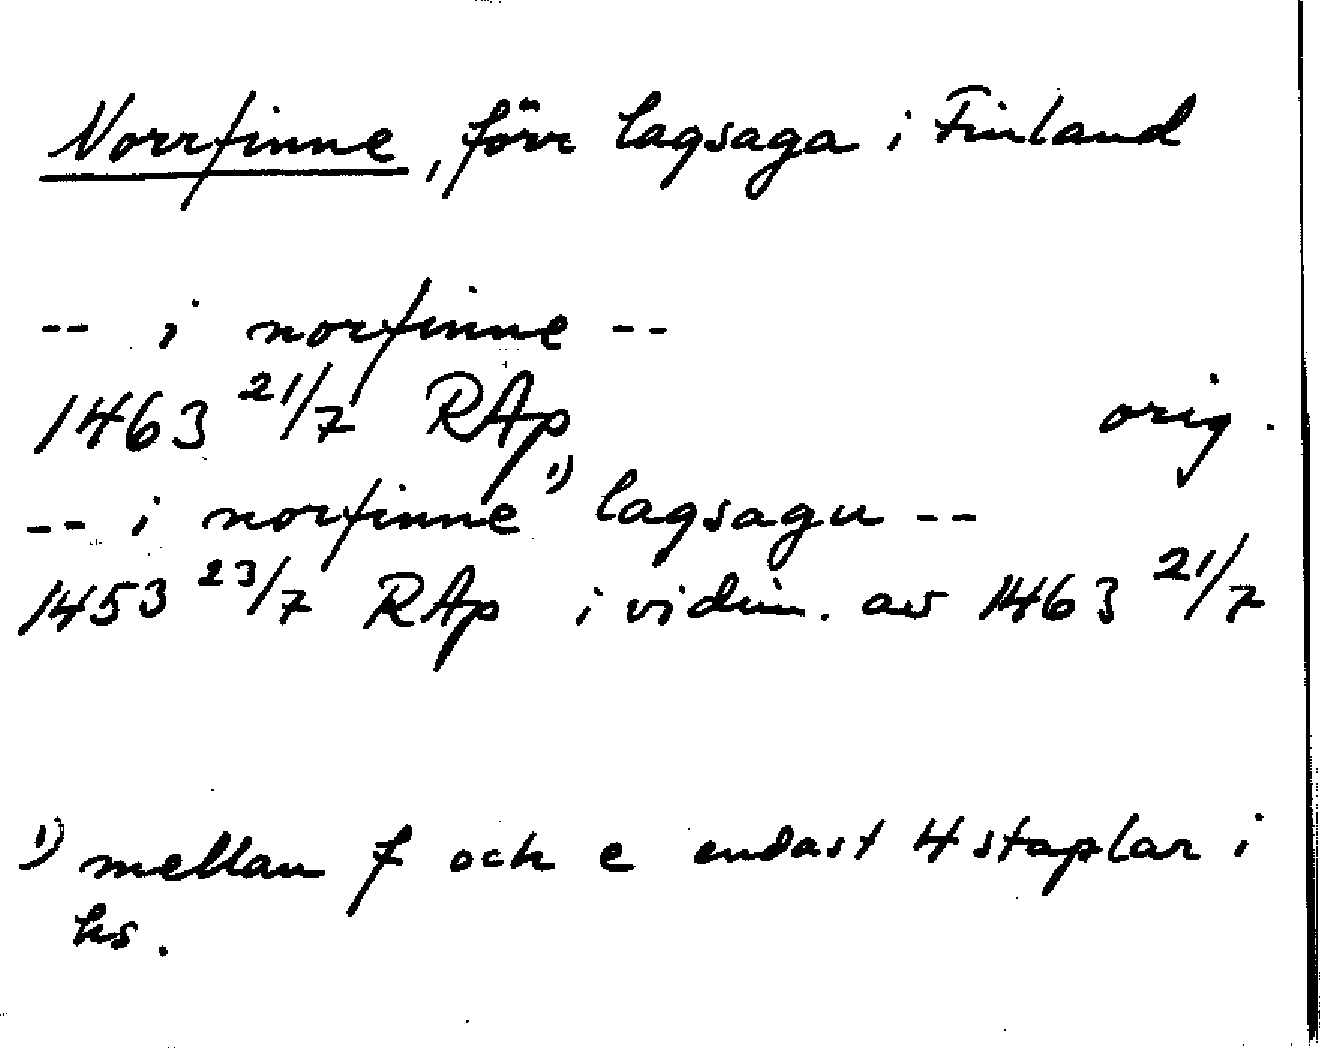 Norrfinne, förr lagsaga i Finland
-- i norfinne --
1463 21/7 RAp orig.
-- i norfinne 1) lagsagu --
1453 23/7 RAp i vidim. av 1463 21/7
1) mellan f och e endast 4 staplar i
hs.